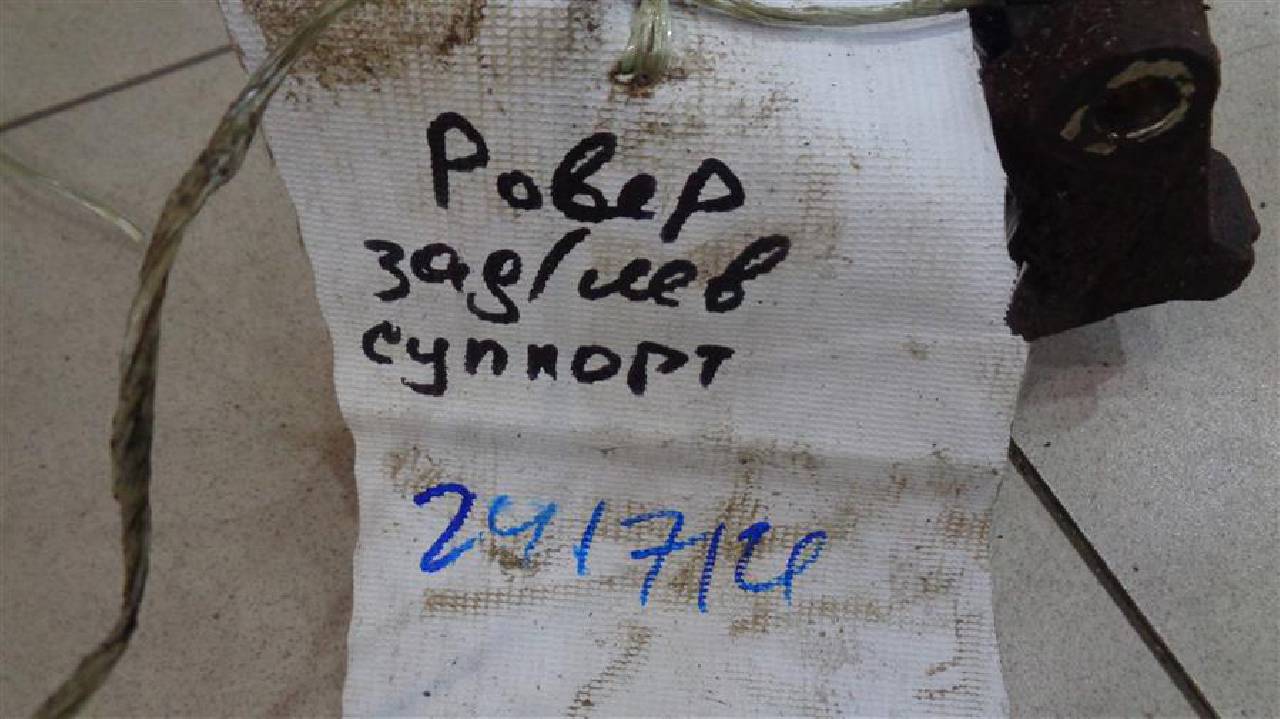 Ровер
зад/лев
суппорт